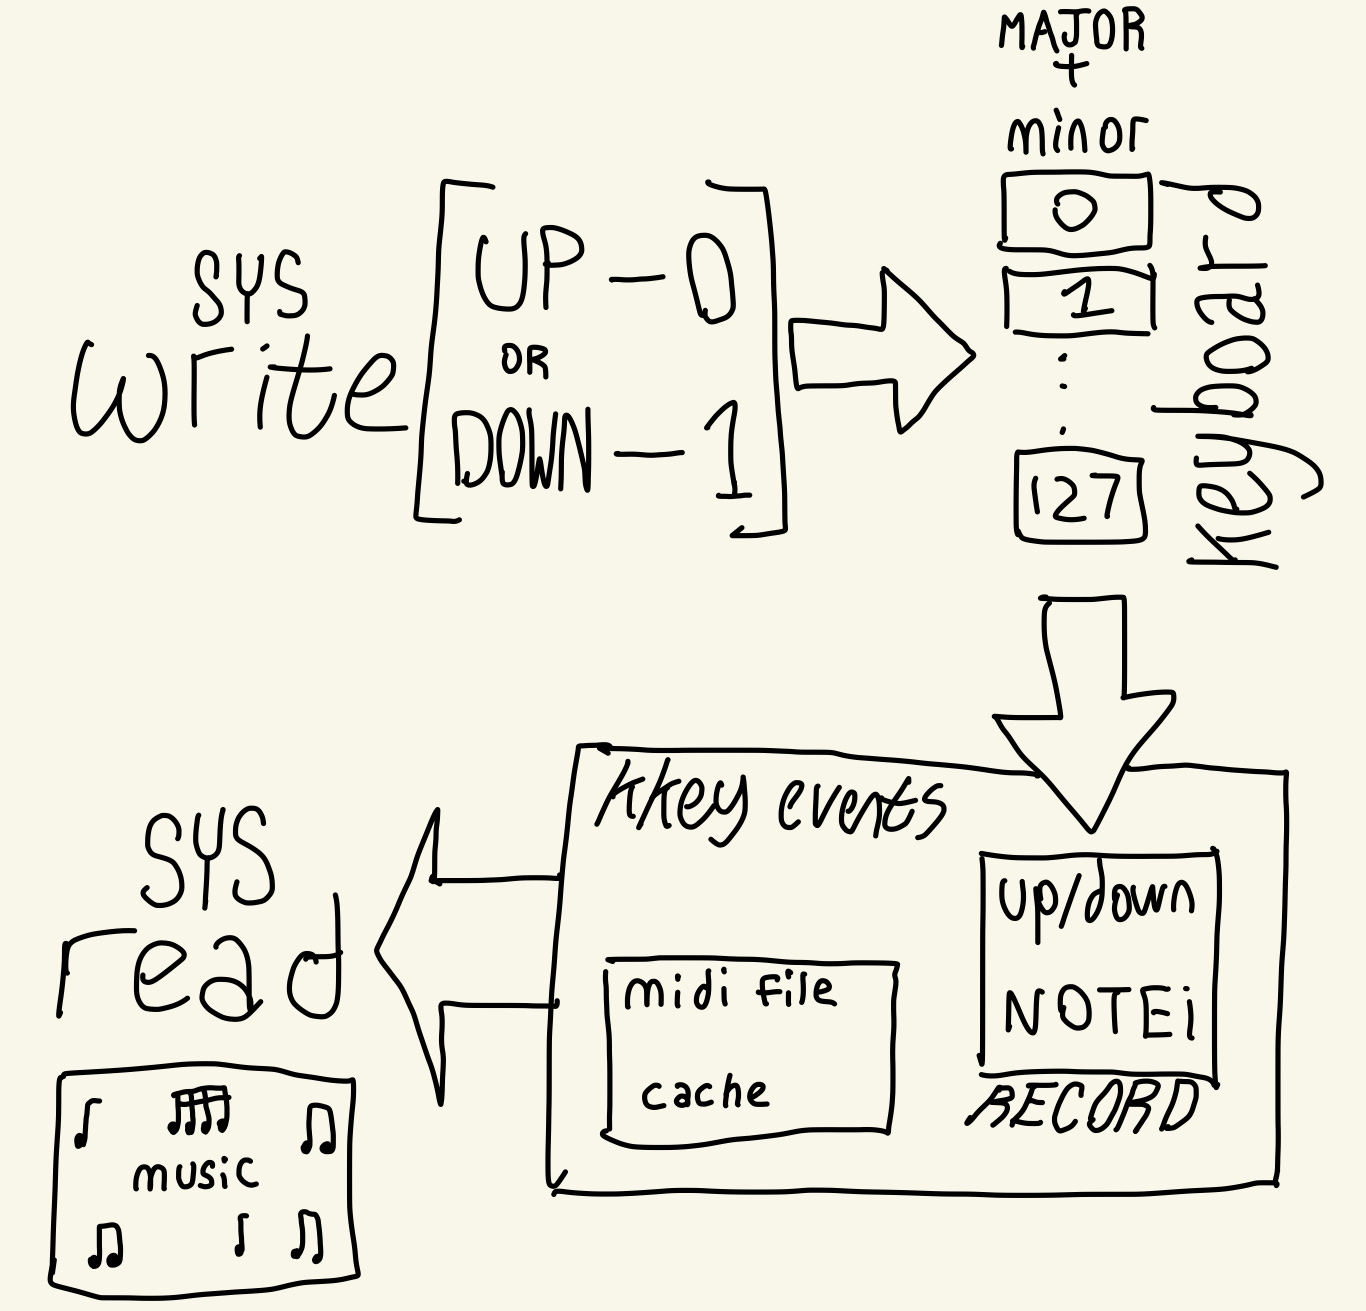 MAJOR
+
minor
SYS
write
UP - 0
OR
DOWN - 1
0
1
127
keyboard
kkey events
up/down
NOTEi
RECORD
midi file
cache
SYS
read
music